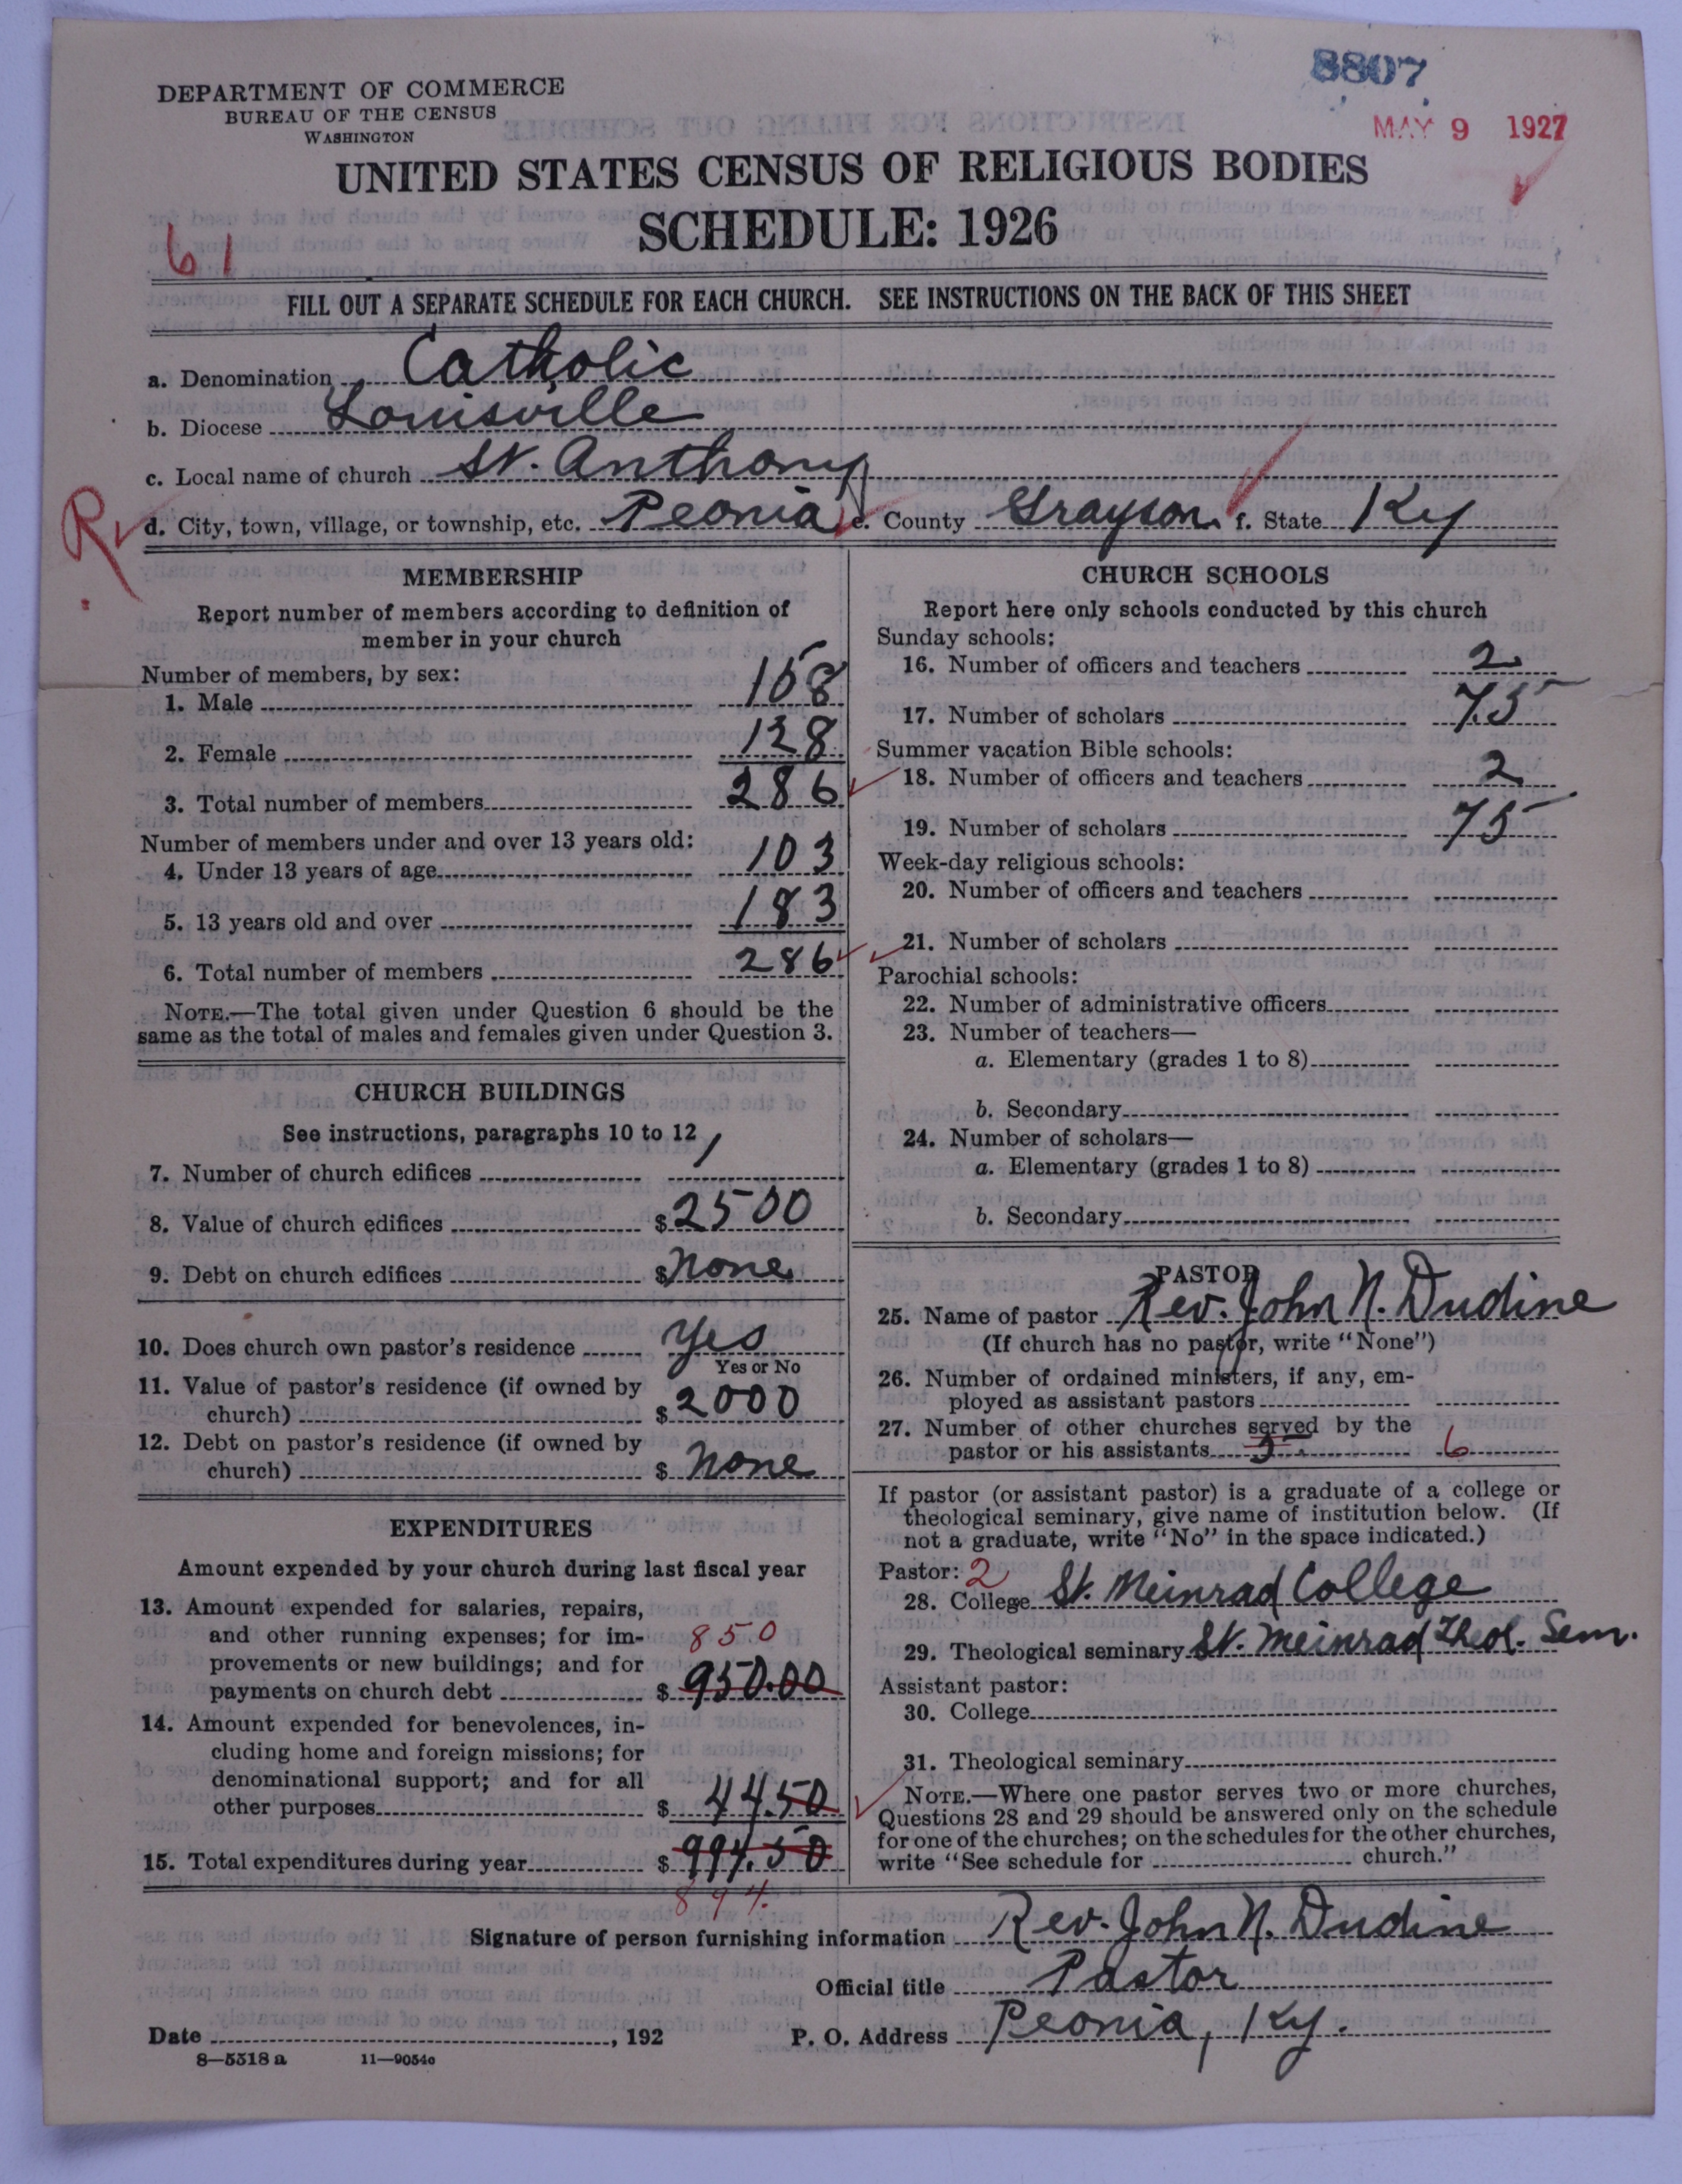 8807
DEPARTMENT OF COMMERCE
BUREAU OF THE CENSUS
WASHINGTON
MAY 9 1927
UNITED STATES CENSUS OF RELIGIOUS BODIES
SCHEDULE: 1926
61
FILL OUT A SEPARATE SCHEDULE FOR EACH CHURCH. SEE INSTRUCTIONS ON THE BACK OF THIS SHEET
a. Denomination Catholic
b. Diocese Louisville
c. Local name of church St. Anthony
R
d. City, town, village, or township, etc. Peonia e. County Grayson f. State Ky
MEMBERSHIP
Report number of members according to definition of
member in your church
Number of members, by sex:
1. Male 158
2. Female 128
3. Total number of members 286
Number of members under and over 13 years old:
4. Under 13 years of age 103
5. 13 years old and over 183
6. Total number of members 286
NOTE.—The total given under Question 6 should be the
same as the total of males and females given under Question 3.
CHURCH BUILDINGS
See instructions, paragraphs 10 to 12
7. Number of church edifices 1
8. Value of church edifices $2500
9. Debt on church edifices $None
10. Does church own pastor's residence Yes
Yes or No
11. Value of pastor's residence (if owned by
church) $2000
12. Debt on pastor's residence (if owned by
church) $ None
EXPENDITURES
Amount expended by your church during last fiscal year
13. Amount expended for salaries, repairs,
and other running expenses; for im- 850
provements or new buildings; and for
payments on church debt $ 950.00
14. Amount expended for benevolences, in-
cluding home and foreign missions; for
denominational support; and for all
other purposes $ 44.50
15. Total expenditures during year $ 994.50
894.
CHURCH SCHOOLS
Report here only schools conducted by this church
Sunday schools:
16. Number of officers and teachers 2
17. Number of scholars 75
Summer vacation Bible schools:
18. Number of officers and teachers 2
19. Number of scholars 75
Week-day religious schools:
20. Number of officers and teachers
21. Number of scholars
Parochial schools:
22. Number of administrative officers
23. Number of teachers—
a. Elementary (grades 1 to 8)
b. Secondary
24. Number of scholars—
a. Elementary (grades 1 to 8)
b. Secondary
PASTOR
25. Name of pastor Rev. John N. Dudine
(If church has no pastor, write "None")
26. Number of ordained ministers, if any, em-
ployed as assistant pastors
27. Number of other churches served by the
pastor or his assistants 6
If pastor (or assistant pastor) is a graduate of a college or
theological seminary, give name of institution below. (If
not a graduate, write "No" in the space indicated.)
Pastor: 2
28. College St. Meinrad College
29. Theological seminary St. Meinrad Theol. Sem.
Assistant pastor:
30. College
31. Theological seminary
NOTE.—Where one pastor serves two or more churches,
Questions 28 and 29 should be answered only on the schedule
for one of the churches; on the schedules for the other churches,
write "See schedule for church."
Signature of person furnishing information Rev. John N. Dudine
Official title Pastor
Date , 192 P. O. Address Peonia, Ky.
8—5318 a 11—9054c